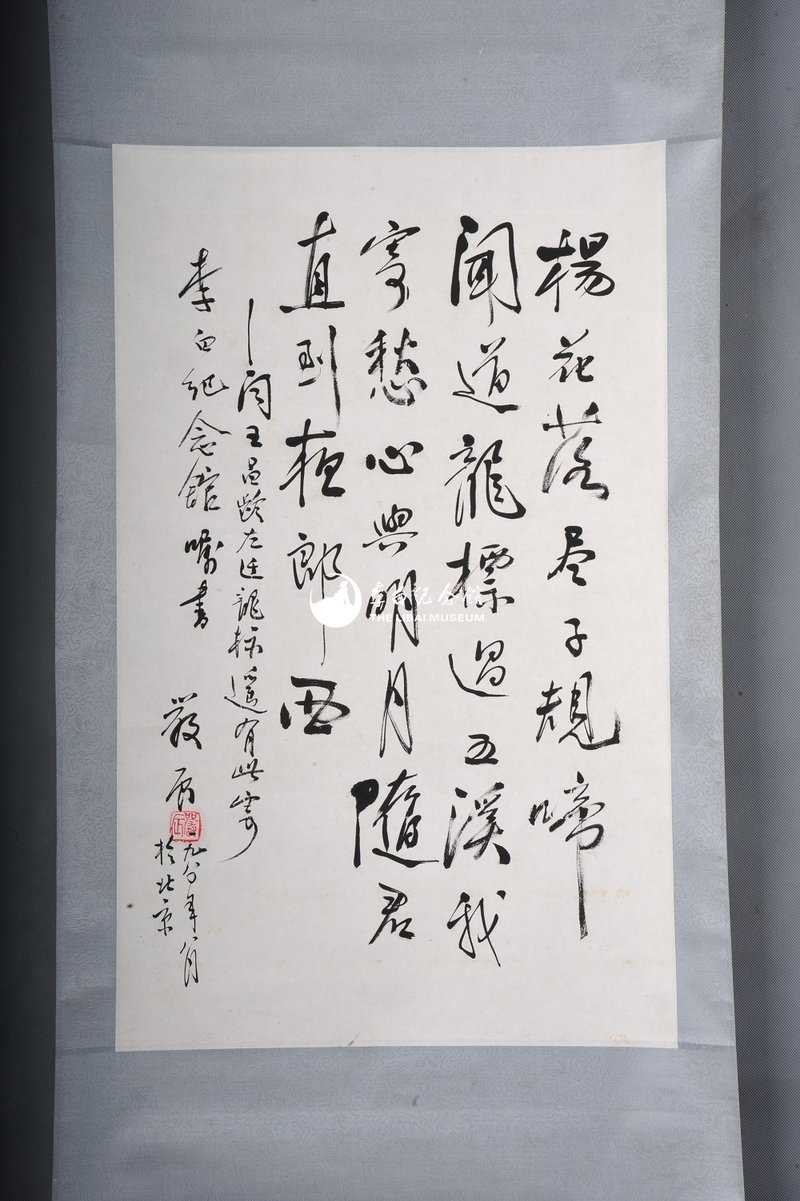 楊花落尽子規啼
聞道龍標過五溪我
寄愁心與明月隨君
直到夜郎西
—聞王昌齡左迁龍标遥有此寄
李白紀念館嘱書
嚴辰
年八月
於北京
李白纪念馆
THE LIBAI MUSEUM